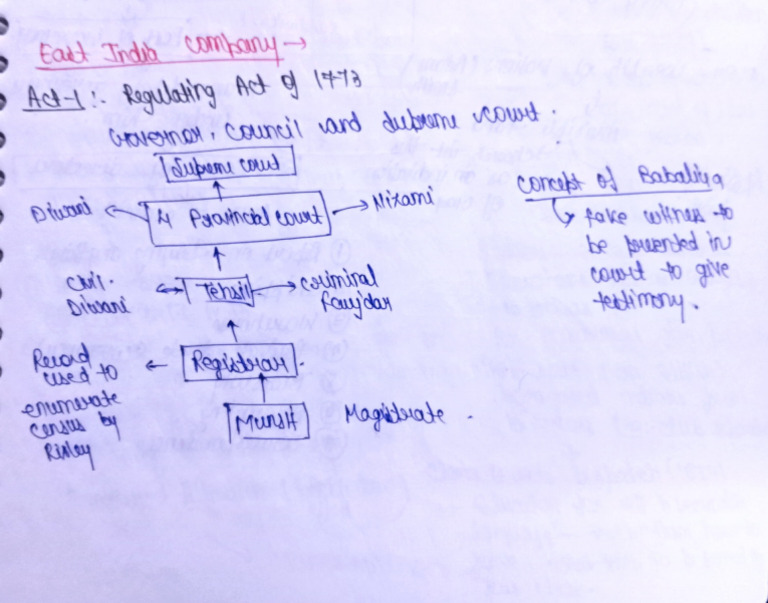 East India company →
Act-1 :- Regulating Act of 1773
Governor, Council and Subreme court.
Supreme court
Diwani ← 4 Provincial court → Nizami
civil- Diwani ← Tehsil → criminal faujdar
Record used to enumerate census by Risley ← Registerar.
Munsif Magistrate -
concept of Babaliya
↳ fake witness to
be presented in
court to give
testimony.